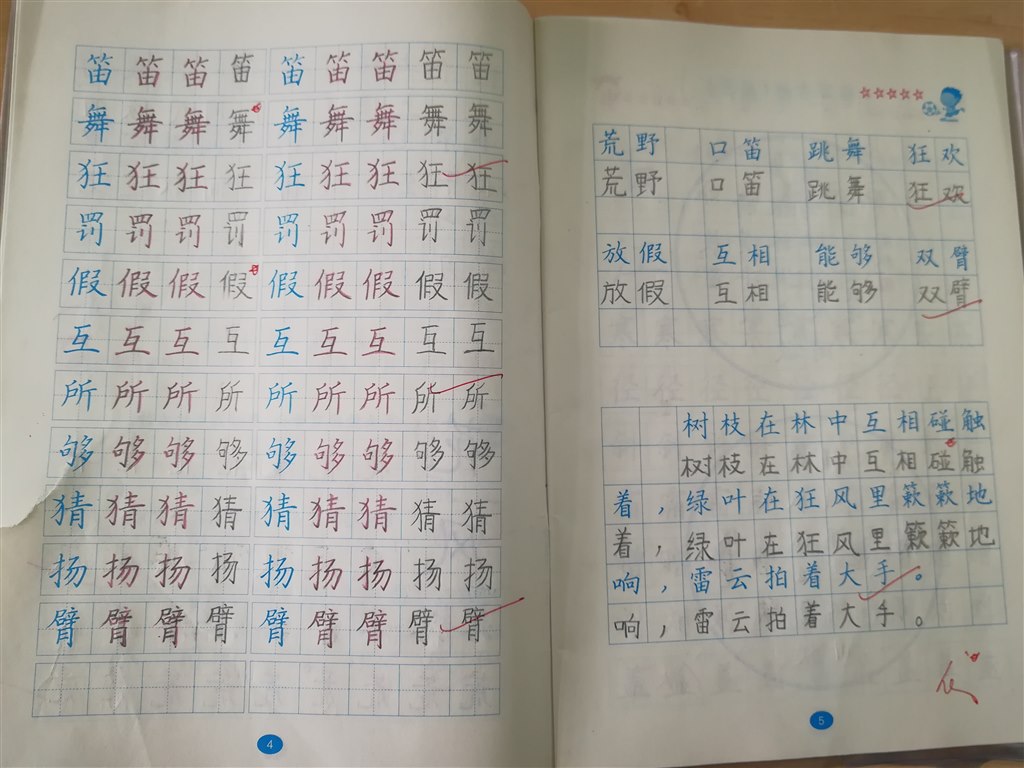 笛笛笛笛笛笛笛笛笛
舞舞舞舞舞舞舞舞舞
狂狂狂狂狂狂狂狂狂
罚罚罚罚罚罚罚罚罚
假假假假假假假假假
互互互互互互互互互
所所所所所所所所所
够够够够够够够够够
猜猜猜猜猜猜猜猜猜
扬扬扬扬扬扬扬扬扬
臂臂臂臂臂臂臂臂臂
4
荒野 口笛 跳舞 狂欢
荒野 口笛 跳舞 狂欢
放假 互相 能够 双臂
放假 互相 能够 双臂
树枝在林中互相碰触
树枝在林中互相碰触
着，绿叶在狂风里簌簌地
着，绿叶在狂风里簌簌地
响，雷云拍着大手。
响，雷云拍着大手。
5